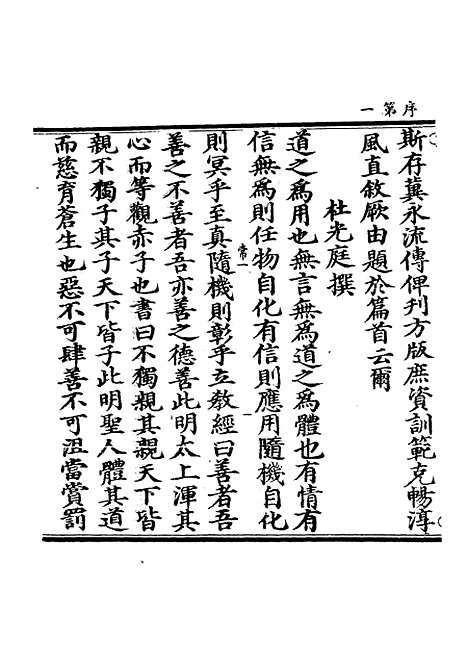 序第一
斯存冀永流傳俾刊方版庶資訓範克暢淳
風直敘厥由題於篇首云爾
杜光庭撰
道之爲用也無言無爲道之爲體也有情有
信無爲則任物自化有信則應用隨機自化
則冥乎至真隨機則彰乎立教經曰善者吾
常一
善之不善者吾亦善之德善此明太上渾其
心而等觀赤子也書曰不獨親其親天下皆
親不獨子其子天下皆子此明聖人體其道
而慈育蒼生也惡不可肆善不可沮當賞罰